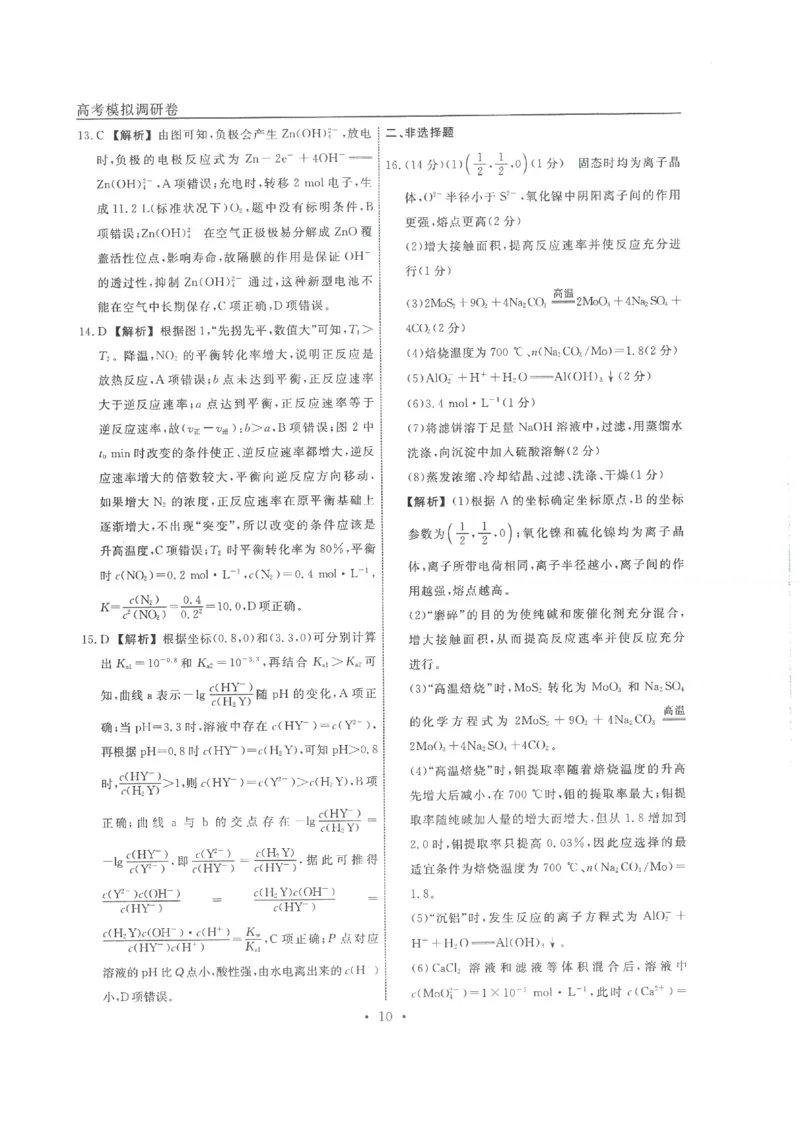 高考模拟调研卷
13.C 【解析】由图可知,负极会产生 Zn(OH)₄²⁻,放电
时,负极的电极反应式为 Zn－2e⁻＋4OH⁻══
Zn(OH)₄²⁻,A项错误;充电时,转移 2 mol电子,生
成11.2 L(标准状况下)O₂,题中没有标明条件,B
项错误;Zn(OH)₄²⁻ 在空气正极极易分解成 ZnO覆
盖活性位点,影响寿命,故隔膜的作用是保证 OH⁻
的透过性,抑制 Zn(OH)₄²⁻ 通过,这种新型电池不
能在空气中长期保存,C项正确,D项错误。
14.D 【解析】根据图1,“先拐先平,数值大”可知,T₁>
T₂。降温,NO₂ 的平衡转化率增大,说明正反应是
放热反应,A项错误;b 点未达到平衡,正反应速率
大于逆反应速率;a 点达到平衡,正反应速率等于
逆反应速率,故(v正－v逆):b>a,B项错误;图2中
t₀ min时改变的条件使正、逆反应速率都增大,逆反
应速率增大的倍数较大,平衡向逆反应方向移动,
如果增大 N₂ 的浓度,正反应速率在原平衡基础上
逐渐增大,不出现“突变”,所以改变的条件应该是
升高温度,C项错误;T₂ 时平衡转化率为80%,平衡
时 c(NO₂)=0.2 mol·L⁻¹,c(N₂)=0.4 mol·L⁻¹,
K=c(N₂)/c²(NO₂)=0.4/0.2²=10.0,D项正确。
15.D 【解析】根据坐标(0.8,0)和(3.3,0)可分别计算
出 Kₐ₁=10⁻⁰·⁸ 和 Kₐ₂=10⁻³·³,再结合 Kₐ₁>Kₐ₂ 可
知,曲线a表示－lg c(HY⁻)/c(H₂Y) 随 pH 的变化,A项正
确;当 pH=3.3时,溶液中存在 c(HY⁻)=c(Y²⁻),
再根据 pH=0.8时 c(HY⁻)=c(H₂Y),可知 pH>0.8
时,c(HY⁻)/c(H₂Y)>1,则 c(HY⁻)=c(Y²⁻)>c(H₂Y),B项
正确;曲线 a 与 b 的交点存在－lg c(HY⁻)/c(H₂Y)=
－lg c(HY⁻)/c(Y²⁻),即 c(Y²⁻)/c(HY⁻)=c(H₂Y)/c(HY⁻),据此可推得
c(Y²⁻)c(OH⁻)/c(HY⁻)=c(H₂Y)c(OH⁻)/c(HY⁻)=
c(H₂Y)c(OH⁻)·c(H⁺)/c(HY⁻)c(H⁺)=Kw/Kₐ₁,C项正确;P 点对应
溶液的 pH比Q点小,酸性强,由水电离出来的c(H )
小,D项错误。
二、非选择题
16.(14分)(1)(1/2,1/2,0)(1分) 固态时均为离子晶
体,O²⁻半径小于 S²⁻,氧化镍中阴阳离子间的作用
更强,熔点更高(2分)
(2)增大接触面积,提高反应速率并使反应充分进
行(1分)
(3)2MoS₂＋9O₂＋4Na₂CO₃ ══高温 2MoO₃＋4Na₂SO₄＋
4CO₂(2分)
(4)焙烧温度为700 ℃、n(Na₂CO₃/Mo)=1.8(2分)
(5)AlO₂⁻＋H⁺＋H₂O══Al(OH)₃↓(2分)
(6)3.4 mol·L⁻¹(1分)
(7)将滤饼溶于足量 NaOH 溶液中,过滤,用蒸馏水
洗涤,向沉淀中加入硫酸溶解(2分)
(8)蒸发浓缩、冷却结晶、过滤、洗涤、干燥(1分)
【解析】(1)根据 A 的坐标确定坐标原点,B的坐标
参数为(1/2,1/2,0);氧化镍和硫化镍均为离子晶
体,离子所带电荷相同,离子半径越小,离子间的作
用越强,熔点越高。
(2)“磨碎”的目的为使纯碱和废催化剂充分混合,
增大接触面积,从而提高反应速率并使反应充分
进行。
(3)“高温焙烧”时,MoS₂ 转化为 MoO₃ 和 Na₂SO₄
的化学方程式为 2MoS₂＋9O₂＋4Na₂CO₃ ══高温
2MoO₃＋4Na₂SO₄＋4CO₂。
(4)“高温焙烧”时,钼提取率随着焙烧温度的升高
先增大后减小,在700 ℃时,钼的提取率最大;钼提
取率随纯碱加入量的增大而增大,但从 1.8 增加到
2.0时,钼提取率只提高 0.03%,因此应选择的最
适宜条件为焙烧温度为 700 ℃、n(Na₂CO₃/Mo)=
1.8。
(5)“沉铝”时,发生反应的离子方程式为 AlO₂⁻＋
H⁺＋H₂O══Al(OH)₃↓。
(6)CaCl₂ 溶液和滤液等体积混合后,溶液中
c(MoO₄²⁻)=1×10⁻² mol·L⁻¹,此时 c(Ca²⁺)=
• 10 •